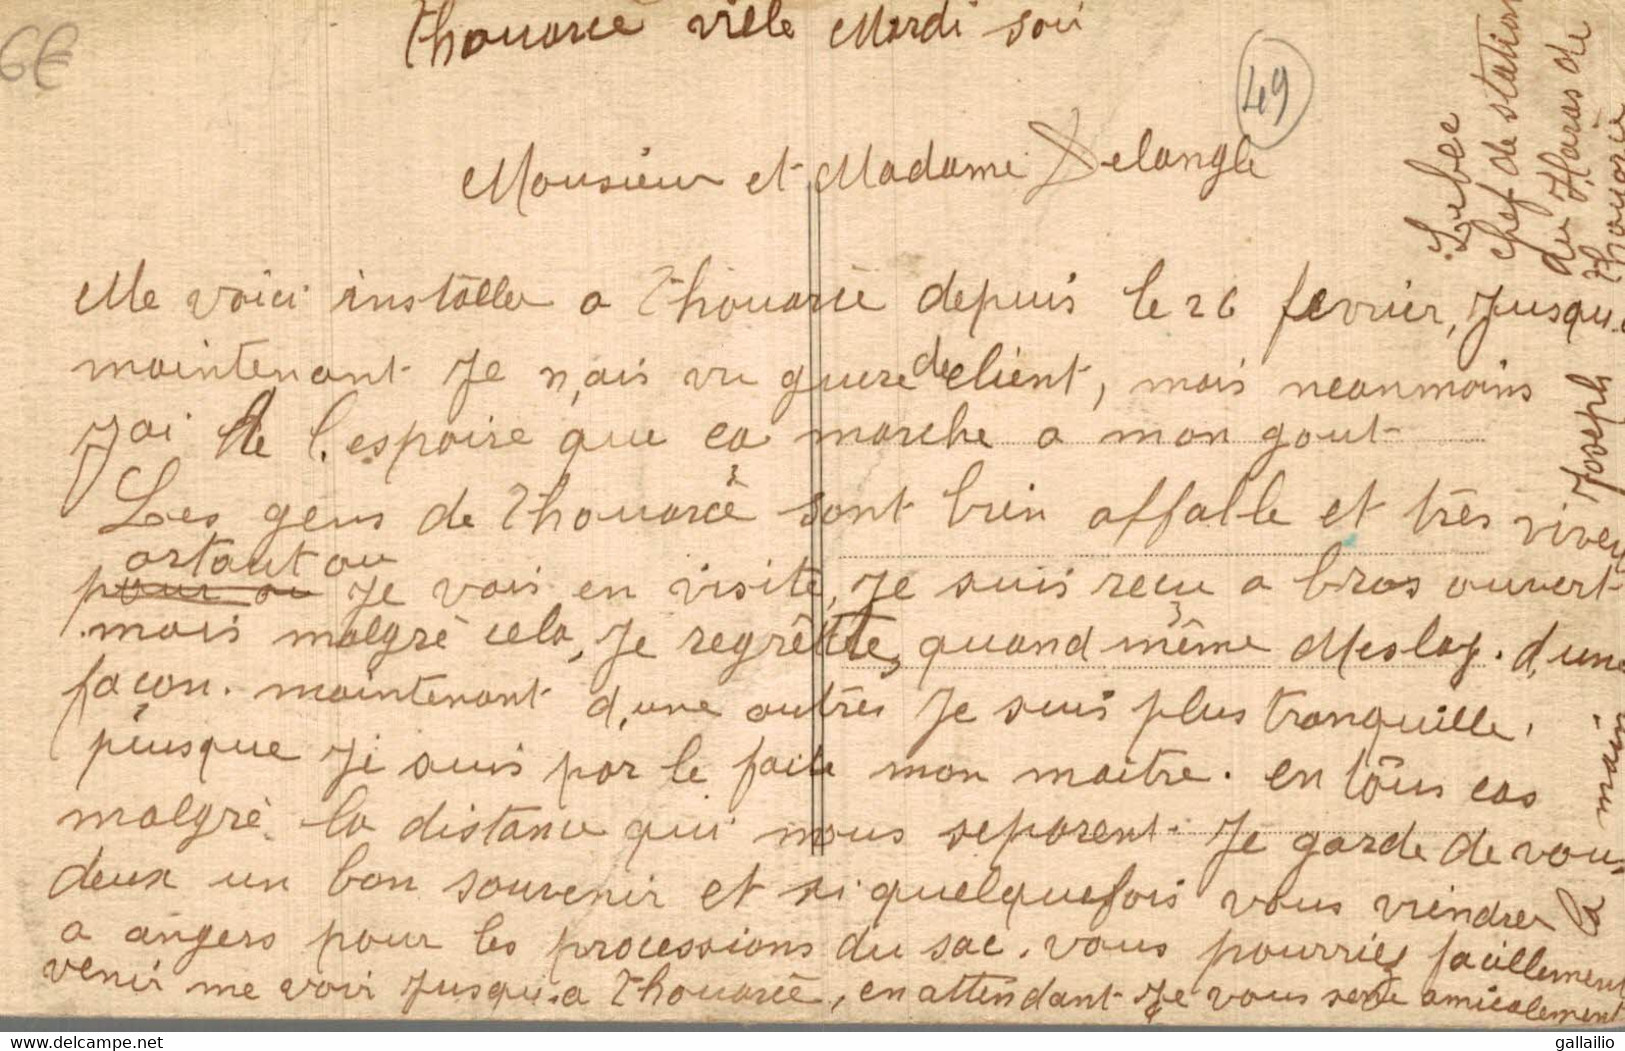 Thouarcé ville Mardi soir
6€
49
Monsieur et Madame Delangle
Me voici installer a Thouarcé depuis le 26 fevrier, Jusqu.a
maintenant Je n,ais vu guere de client, mais neanmoins
J'ai de l.espoire que ca marche a mon gout
Les gens de Thouarcé sont bien affable et très
partout ou
pour ou Je vais en visite, Je suis recu a bras ouvert
mais malgré cela, Je regrêtte, quand même Meslay. d,une
façon. maintenant d,une autres Je suis plus tranquille.
puisque Ji suis par le faite mon maitre. en tous cas
malgré la distance qui nous separent. Je garde de vous
deux un bon souvenir et si quelquefois vous viendrer
a angers pour les processions du sac. vous pourries facillement
venir me voir Jusqu.a Thouarcé, en attendant Je vous serre amicalement
la main
Joseph
chef de station
du Haras de
Thouarcé
gallailio